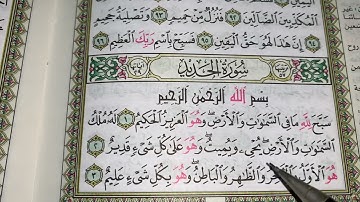 ٱلْمُكَذِّبِينَ ٱلضَّآلِّينَ ٩٢ فَنُزُلٌ مِّنْ حَمِيمٍ ٩٣ وَتَصْلِيَةُ جَحِيمٍ
٩٤ إِنَّ هَٰذَا لَهُوَ حَقُّ ٱلْيَقِينِ ٩٥ فَسَبِّحْ بِٱسْمِ رَبِّكَ ٱلْعَظِيمِ ٩٦
سُورَةُ الْحَدِيدِ
بِسْمِ ٱللَّهِ ٱلرَّحْمَٰنِ ٱلرَّحِيمِ
سَبَّحَ لِلَّهِ مَا فِى ٱلسَّمَٰوَٰتِ وَٱلْأَرْضِ وَهُوَ ٱلْعَزِيزُ ٱلْحَكِيمُ ١ لَهُۥ مُلْكُ
ٱلسَّمَٰوَٰتِ وَٱلْأَرْضِ يُحْىِۦ وَيُمِيتُ وَهُوَ عَلَىٰ كُلِّ شَىْءٍ قَدِيرٌ ٢
هُوَ ٱلْأَوَّلُ وَٱلْءَاخِرُ وَٱلظَّٰهِرُ وَٱلْبَاطِنُ وَهُوَ بِكُلِّ شَىْءٍ عَلِيمٌ ٣